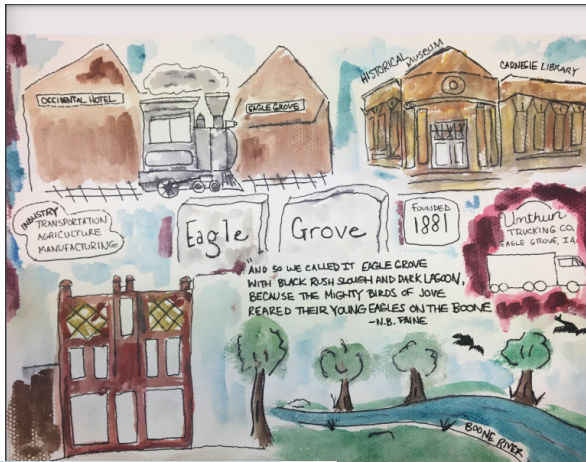 HISTORICAL MUSEUM
CARNEGIE LIBRARY
OCCIDENTAL HOTEL
EAGLE GROVE
INDUSTRY
TRANSPORTATION
AGRICULTURE
MANUFACTURING
Eagle Grove
FOUNDED
1881
Unthun
TRUCKING CO.
EAGLE GROVE, IA
"AND SO WE CALLED IT EAGLE GROVE
WITH BLACK RUSH SLOUGH AND DARK LAGOON,
BECAUSE THE MIGHTY BIRDS OF JOVE
REARED THEIR YOUNG EAGLES ON THE BOONE
-N.B. PAINE
BOONE RIVER